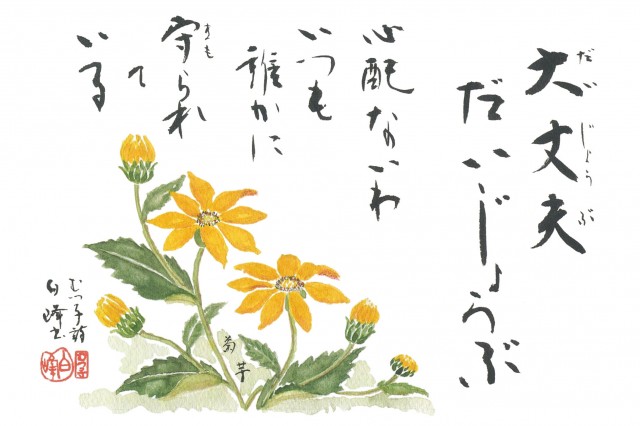 大丈夫
だいじょうぶ
だいじょうぶ
心配ないわ
いつも
誰かに
守られ
まも
て
いる
菊芋
むつ子詩
白峰書